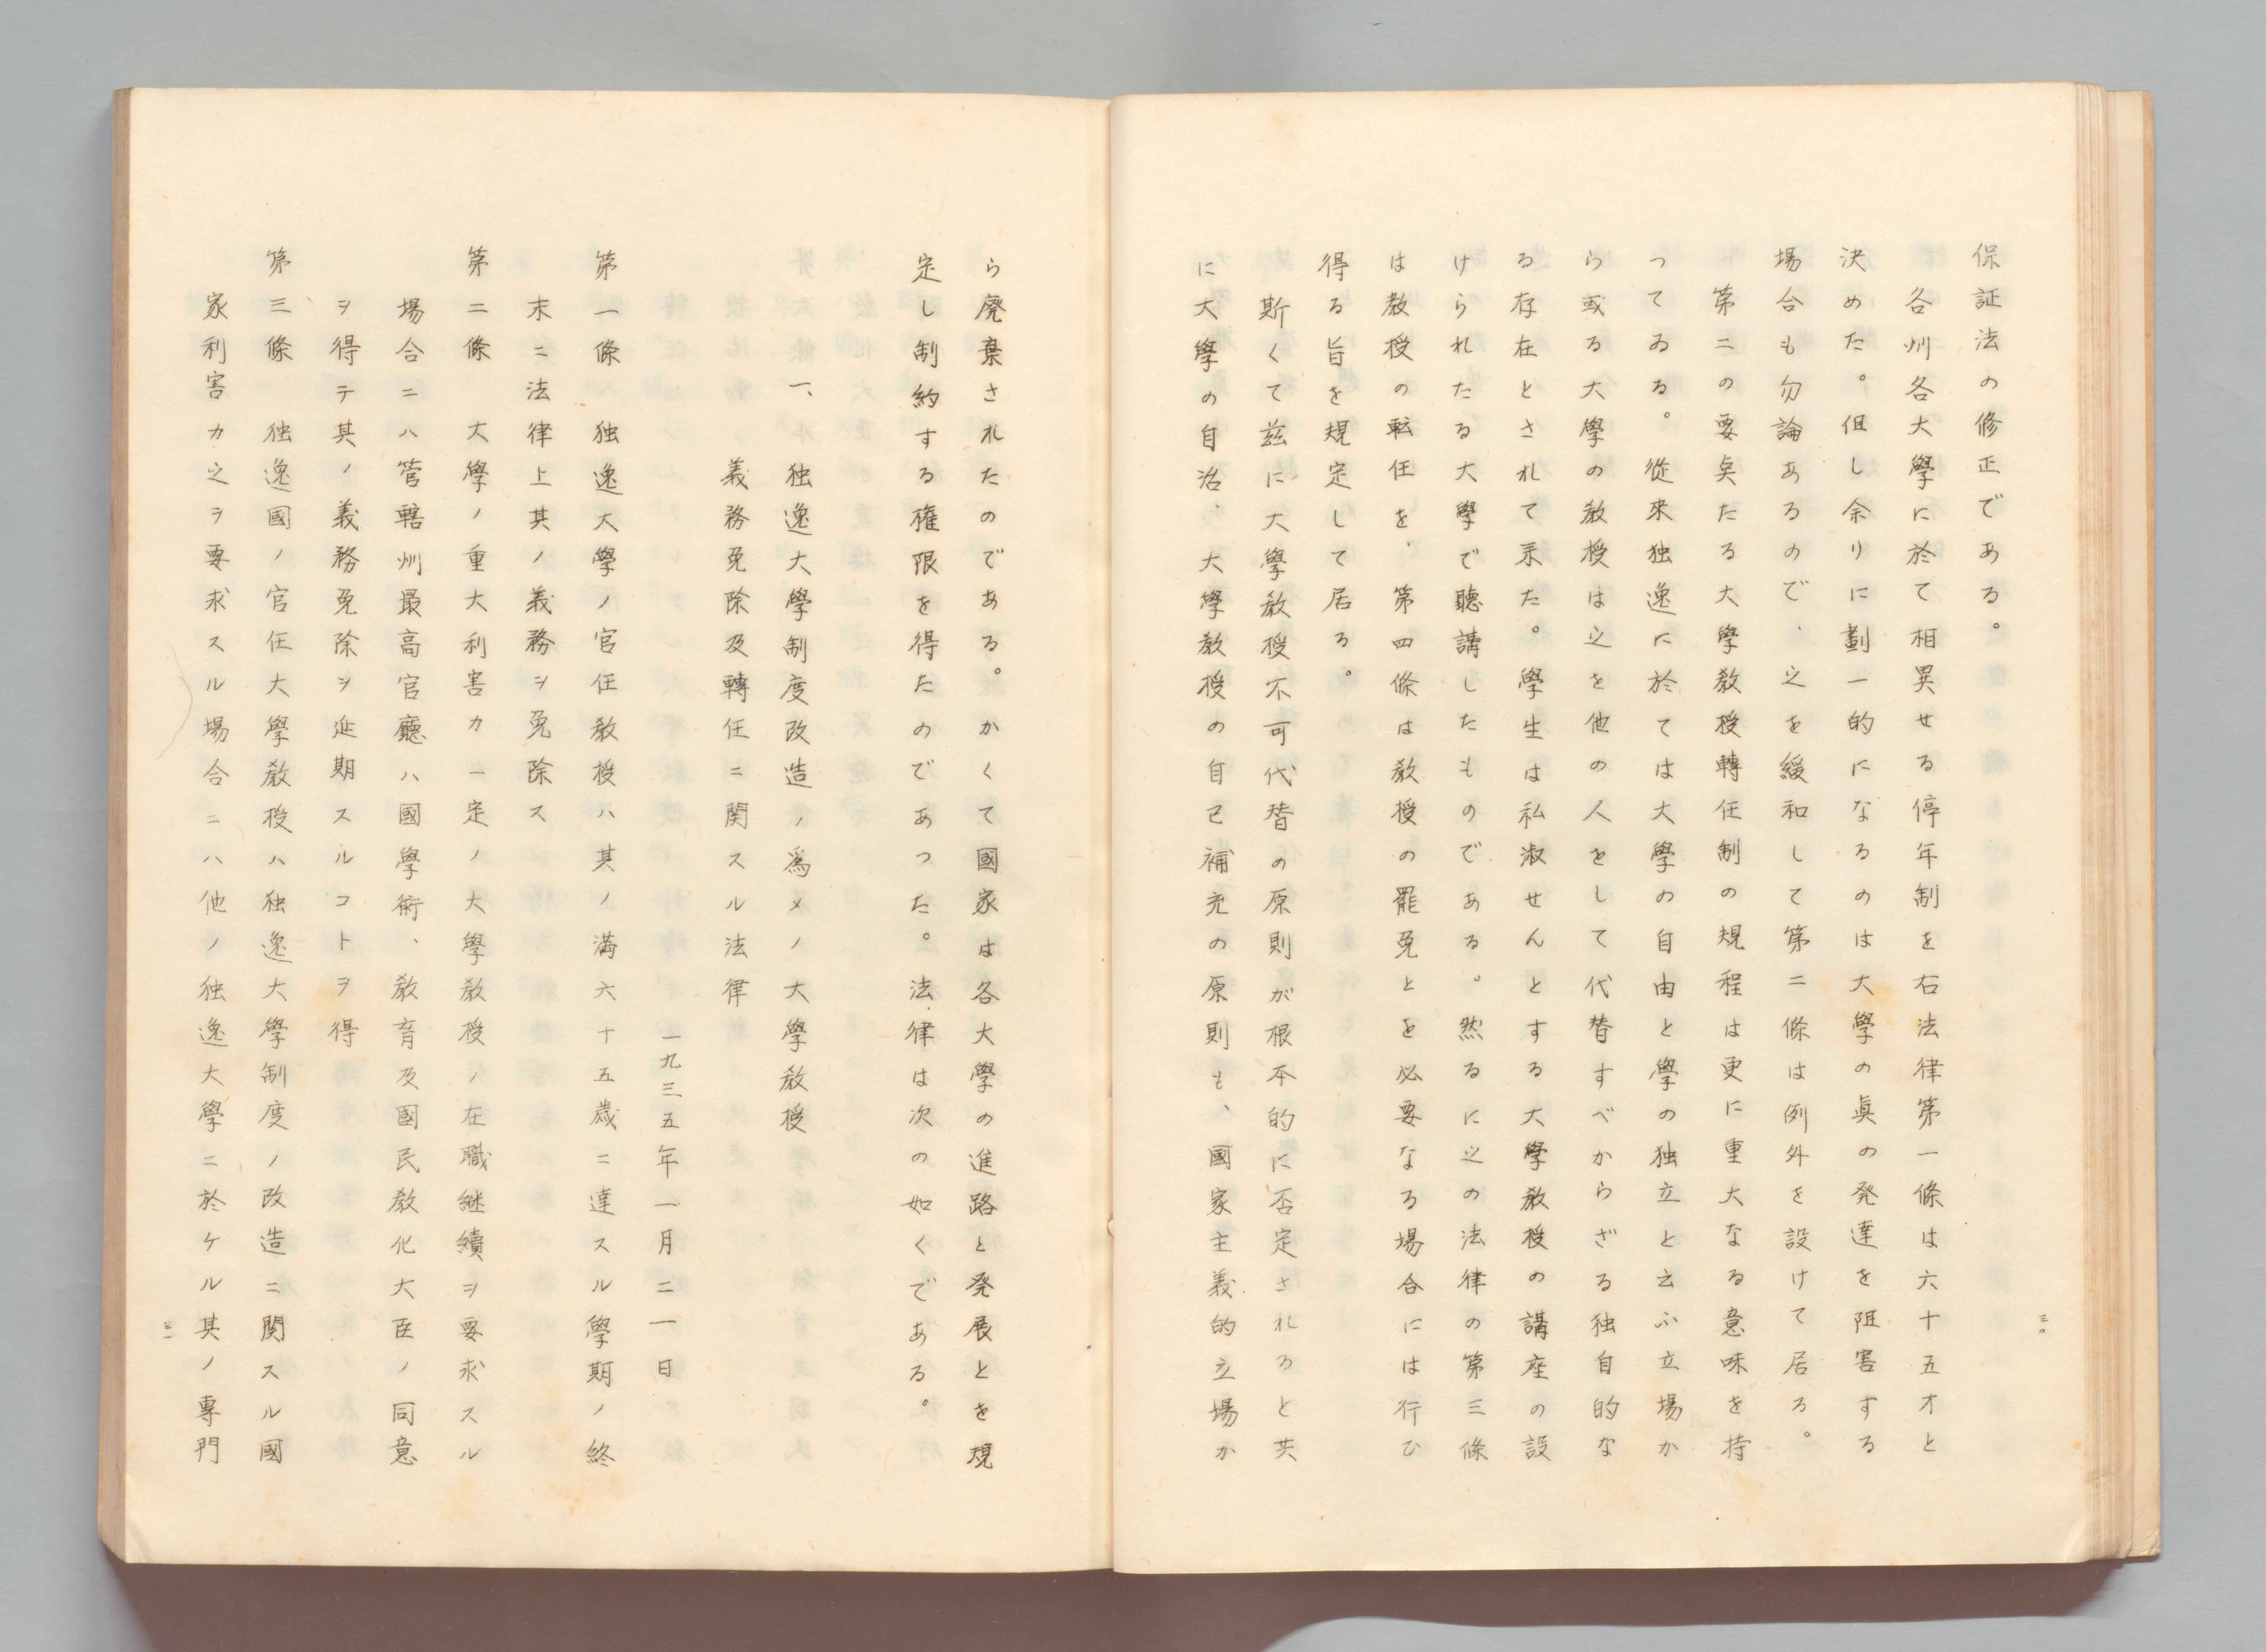 保証法の修正である。
各州各大學に於て相異せる停年制を右法律第一條は六十五才と
決めた。但し余りに劃一的になるのは大學の眞の発達を阻害する
場合も勿論あるので、之を緩和して第二條は例外を設けて居る。
第二の要点たる大學教授轉任制の規程は更に重大なる意味を持
つてゐる。從來独逸に於ては大學の自由と學の独立と云ふ立場か
ら或る大學の教授は之を他の人をして代替すべからざる独自的な
る存在とされて来た。學生は私淑せんとする大學教授の講座の設
けられたる大學で聽講したものである。然るに之の法律の第三條
は教授の転任を、第四條は教授の罷免とを必要なる場合には行ひ
得る旨を規定して居る。
斯くて茲に大學教授不可代替の原則が根本的に否定されると共
に大學の自治、大學教授の自己補充の原則も、國家主義的立場か
三〇
ら廃棄されたのである。かくて國家は各大學の進路と発展とを規
定し制約する権限を得たのであつた。法律は次の如くである。
一、独逸大學制度改造ノ爲メノ大學教授
義務免除及轉任ニ関スル法律
一九三五年一月二一日
第一條　独逸大學ノ官任教授ハ其ノ満六十五歳ニ達スル學期ノ終
末ニ法律上其ノ義務ヲ免除ス
第二條　大學ノ重大利害カ一定ノ大學教授ノ在職継續ヲ要求スル
場合ニハ管轄州最高官廳ハ國學術、教育及國民教化大臣ノ同意
ヲ得テ其ノ義務免除ヲ延期スルコトヲ得
第三條　独逸國ノ官任大學教授ハ独逸大學制度ノ改造ニ関スル國
家利害カ之ヲ要求スル場合ニハ他ノ独逸大學ニ於ケル其ノ専門
三一